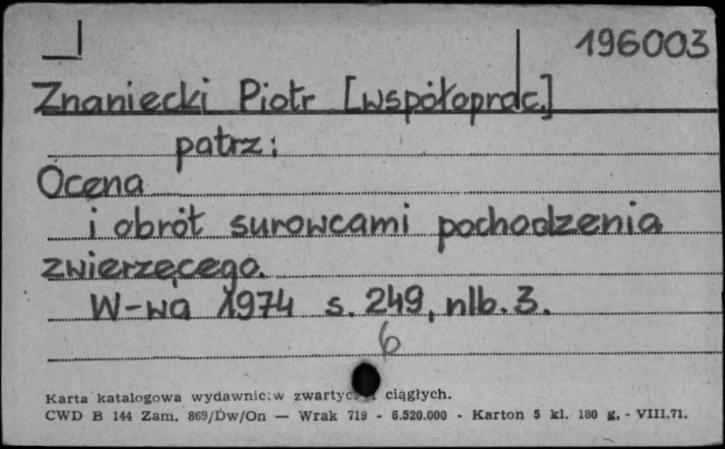 196003
Znaniecki Piotr [współoprac.]
patrz:
Ocena
i obrót surowcami pochodzenia
zwierzęcego.
W-wa 1974 s. 249, nlb. 3.
6
Karta katalogowa wydawnictw ciągłych.
CWD B 144 Zam. 869/Dw/On — Wrak 719 - 6.520.000 - Karton 5 kl. 180 g. - VIII.71.